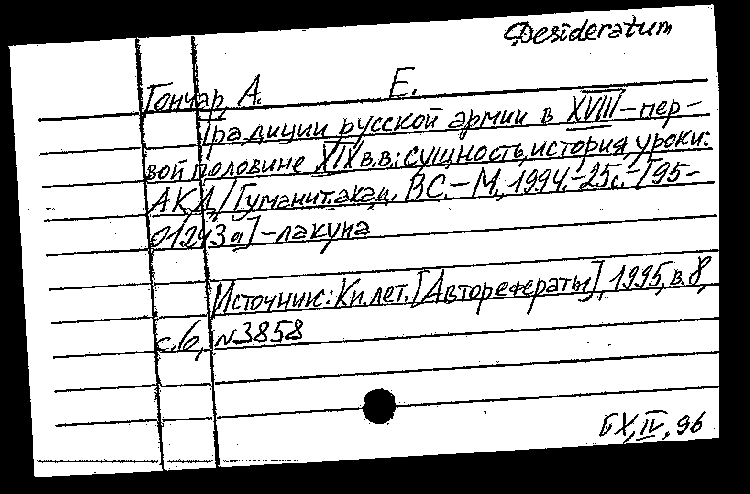 Desideratum
Гончар, А. Е.
Традиции русской армии в XVIII-пер-
вой половине XIX в.в: сущность, история, уроки:
АКД/Гуманит. акад. ВС.-М., 1994.-25с.-[95-
01243а]-лакуна
Источник: Кн. лет. [Авторефераты], 1995, в. 8,
с. 6, N3858
БХ, IV, 96